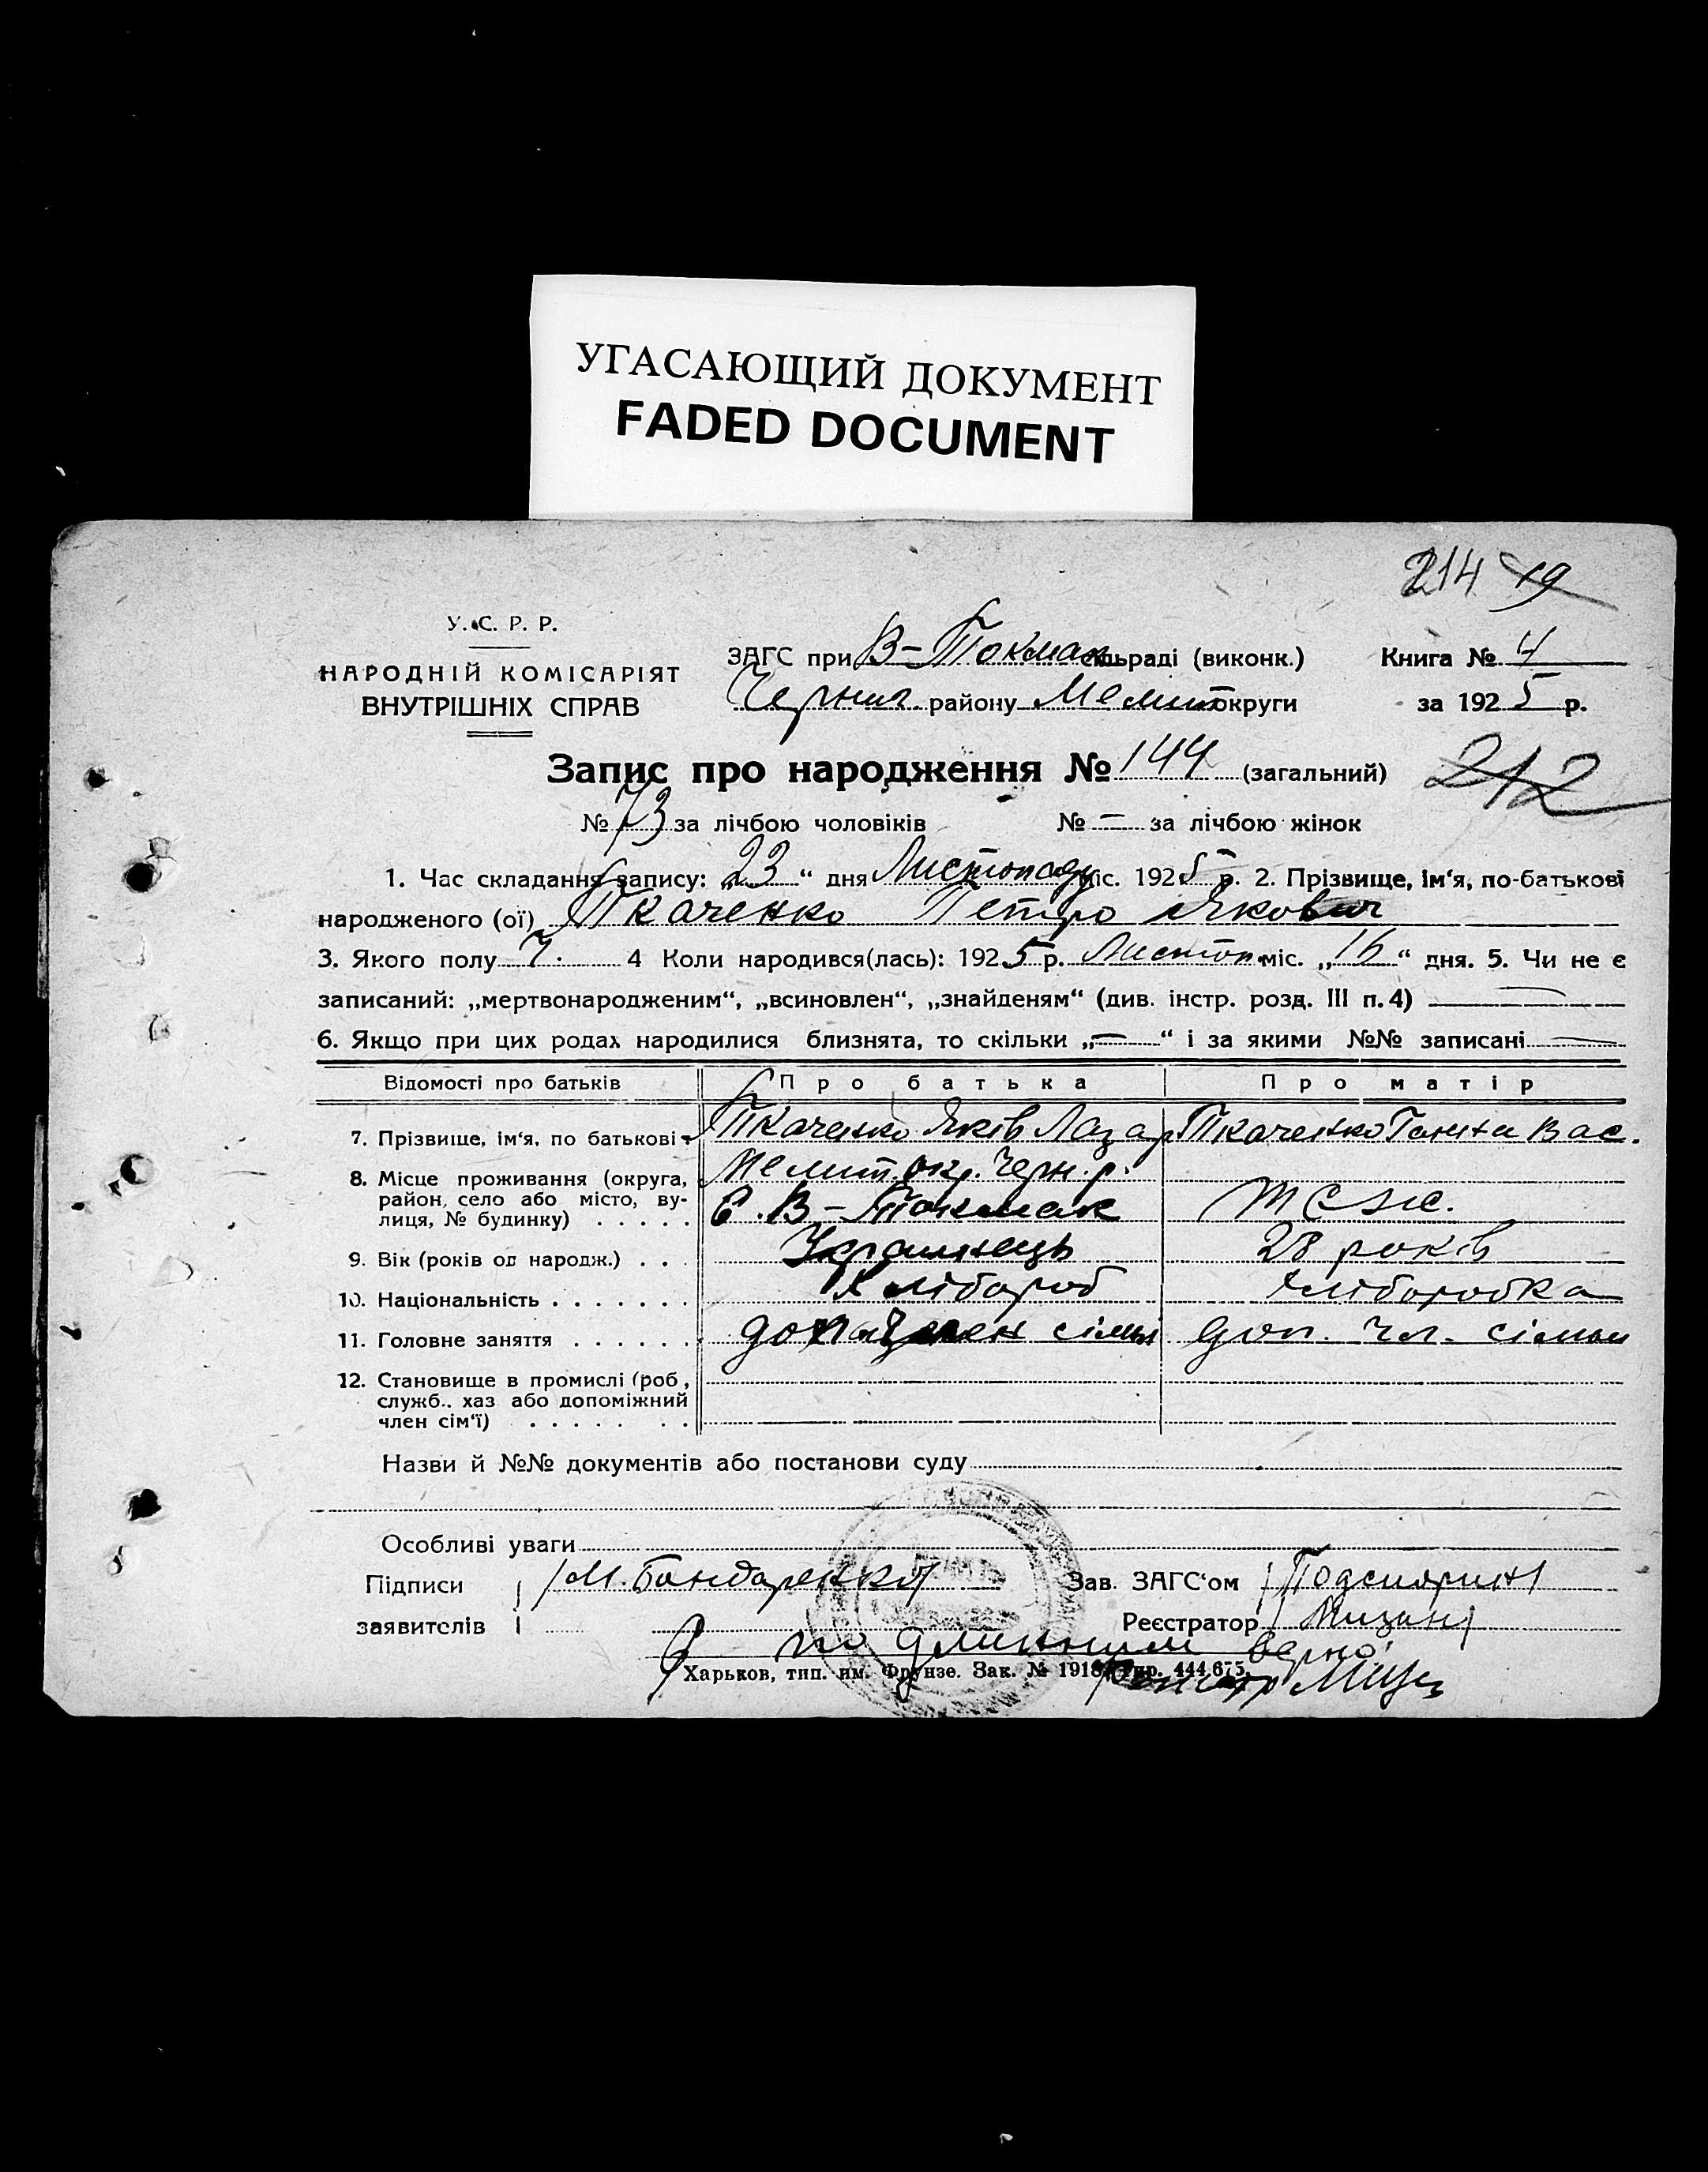 УГАСАЮЩИЙ ДОКУМЕНТ
FADED DOCUMENT
214 19
У. С. Р. Р.
НАРОДНІЙ КОМІСАРІЯТ
ВНУТРІШНІХ СПРАВ
ЗАГС при В-Токмак сільраді (виконк.) Книга № 4
Черниг. району Мелит округи за 1925 р.
Запис про народження № 144 (загальний)
212
№ 73 за лічбою чоловіків № — за лічбою жінок
1. Час складання запису: „23“ дня Листопаду міс. 1925 р. 2. Прізвище, ім‘я, по-батькові
народженого (ої) Ткаченко Петро Якович
3. Якого полу Ч. 4 Коли народився(лась): 1925 р. Листоп. міс. „16“ дня. 5. Чи не є
записаний: „мертвонародженим“, „всиновлен“, „знайденям“ (див. інстр. розд. III п. 4) —
6. Якщо при цих родах народилися близнята, то скільки „—“ і за якими №№ записані —
Відомості про батьків Про батька Про матір
7. Прізвище, ім‘я, по батькові Ткаченко Яків Лазар Ткаченко Ганна Вас.
8. Місце проживання (округа, район, село або місто, вулиця, № будинку) . . . . . Мелит. окр. Черн. р.
С. В-Токмак тєж.
9. Вік (років од народж.) . . . Українець 28 років
10. Національність . . . . . . . Хлібороб Хліборобка
11. Головне заняття . . . . . . доп член сімьі доп. чл. сімьи
12. Становище в промислі (роб., служб.. хаз або допоміжний член сім‘ї) . . . . . . .
Назви й №№ документів або постанови суду
Особливі уваги
Підписи заявителів /М. Бондаренко/ Зав. ЗАГС‘ом /Подсмирин/
Реєстратор
верно:
Харьков, тип. им. Фрунзе. Зак. № 1918. Тир. 444.675.